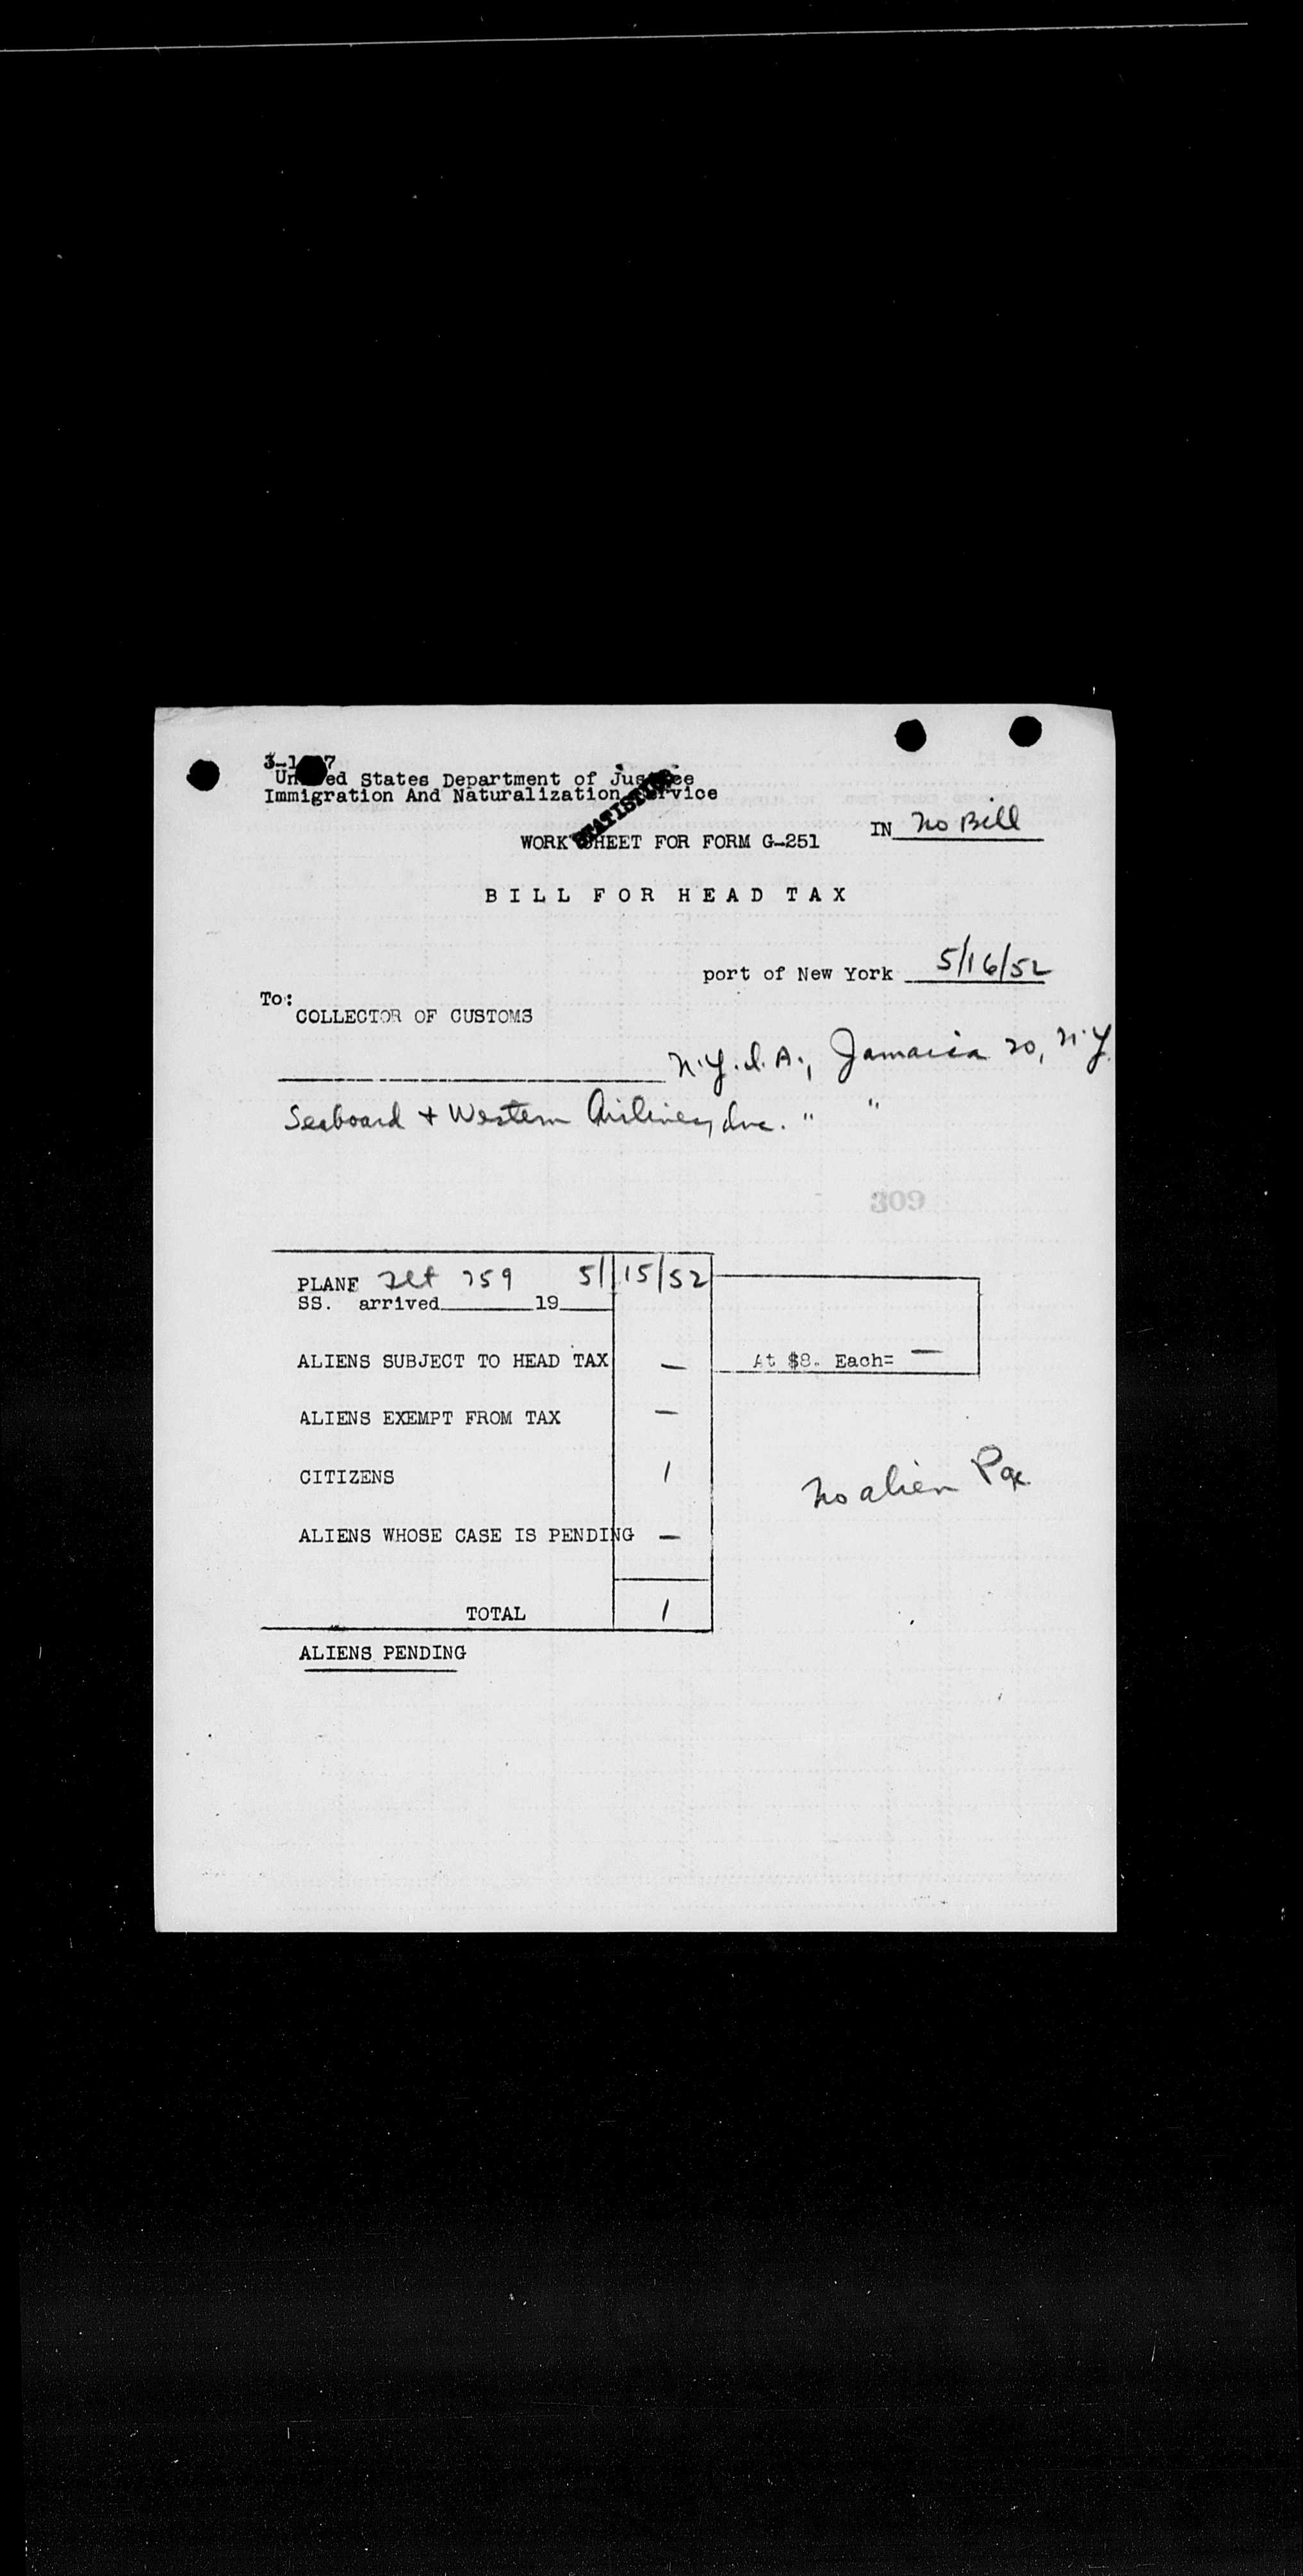 3-1 7
United States Department of Justice
Immigration And Naturalization Service
STATISTICS
WORK SHEET FOR FORM G-251
IN no Bill
BILL FOR HEAD TAX
port of New York 5/16/52
To:
COLLECTOR OF CUSTOMS
N.Y.I.A., Jamaica 20, N.Y.
Seaboard + Western Airlines, Inc. " "
309
PLANE Flt 759 5/15/52
SS. arrived 19
ALIENS SUBJECT TO HEAD TAX — At $8. Each= —
ALIENS EXEMPT FROM TAX —
CITIZENS 1
no alien Pax
ALIENS WHOSE CASE IS PENDING —
TOTAL 1
ALIENS PENDING